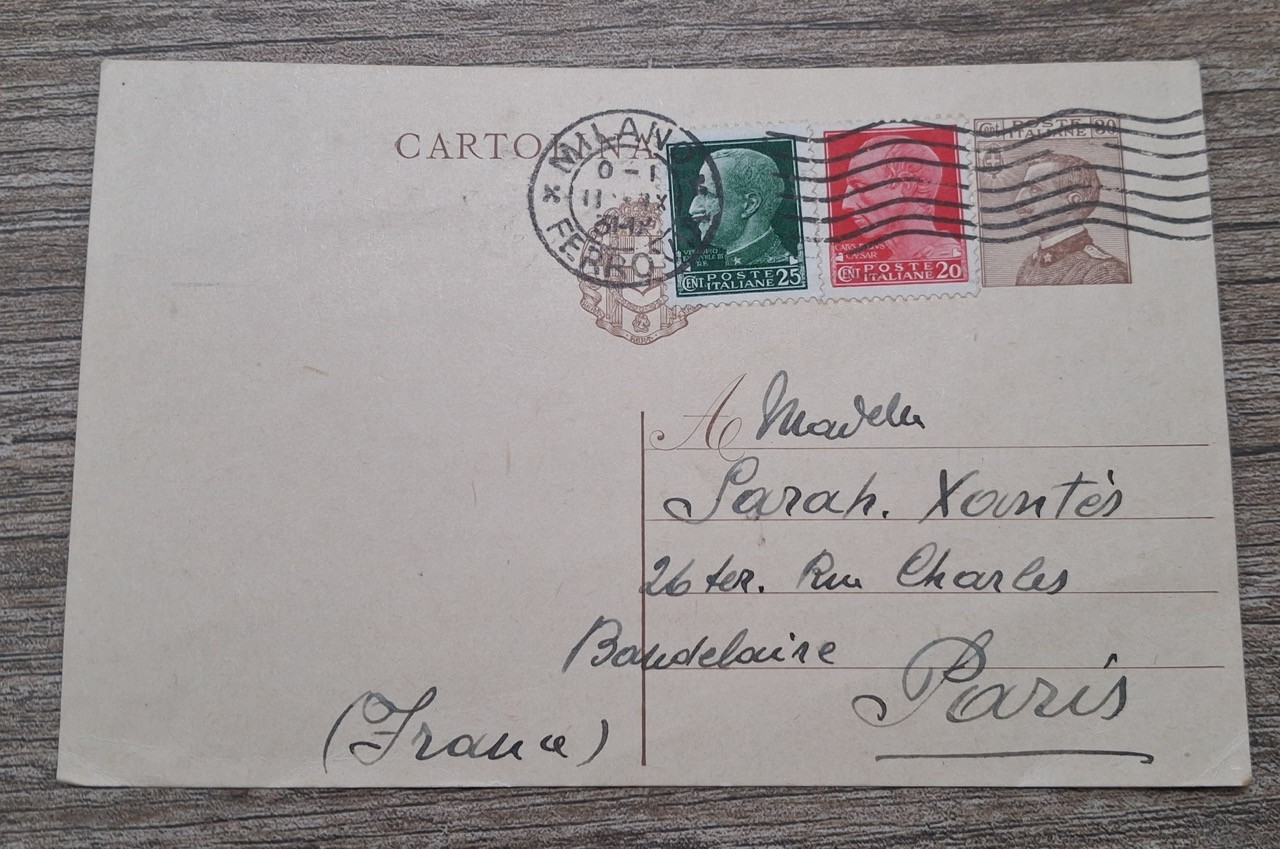 CARTOLINA
MILANO
FERROVIA
POSTE
ITALIANE 25
CENT
CAIVS IVLIVS
CAESAR
CENT POSTE
ITALIANE 20
Cent POSTE 30
ITALIANE
A Madelle
Sarah. Xantès
26 ter. Rue Charles
Baudelaire
Paris
(France)